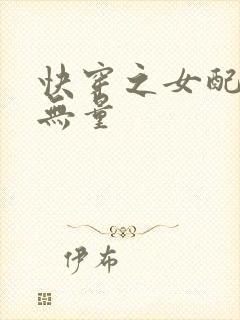 快穿之女配
無量
伊布